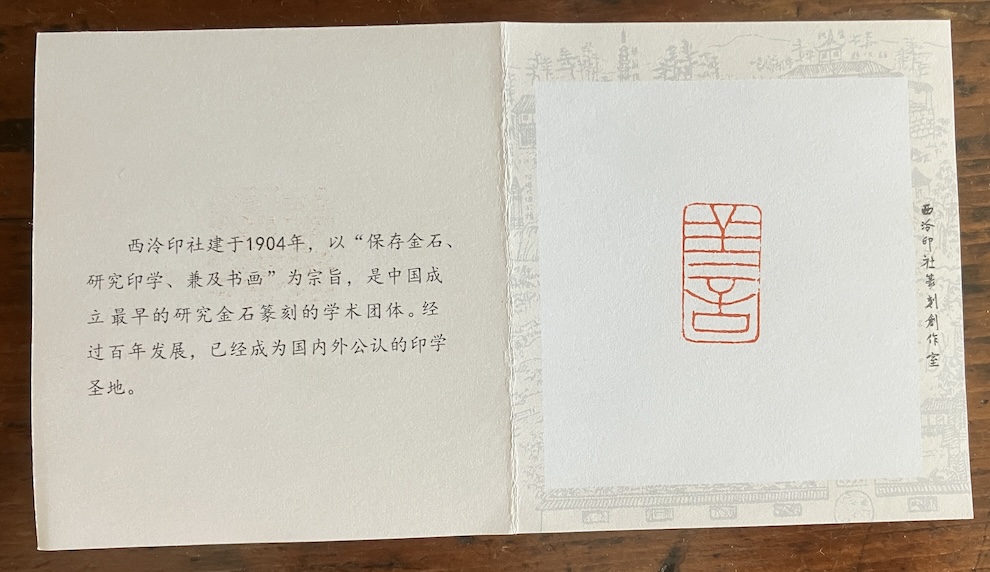 西泠印社建于1904年，以“保存金石、
研究印学、兼及书画”为宗旨，是中国成
立最早的研究金石篆刻的学术团体。经
过百年发展，已经成为国内外公认的印学
圣地。
西泠印社篆刻創作室